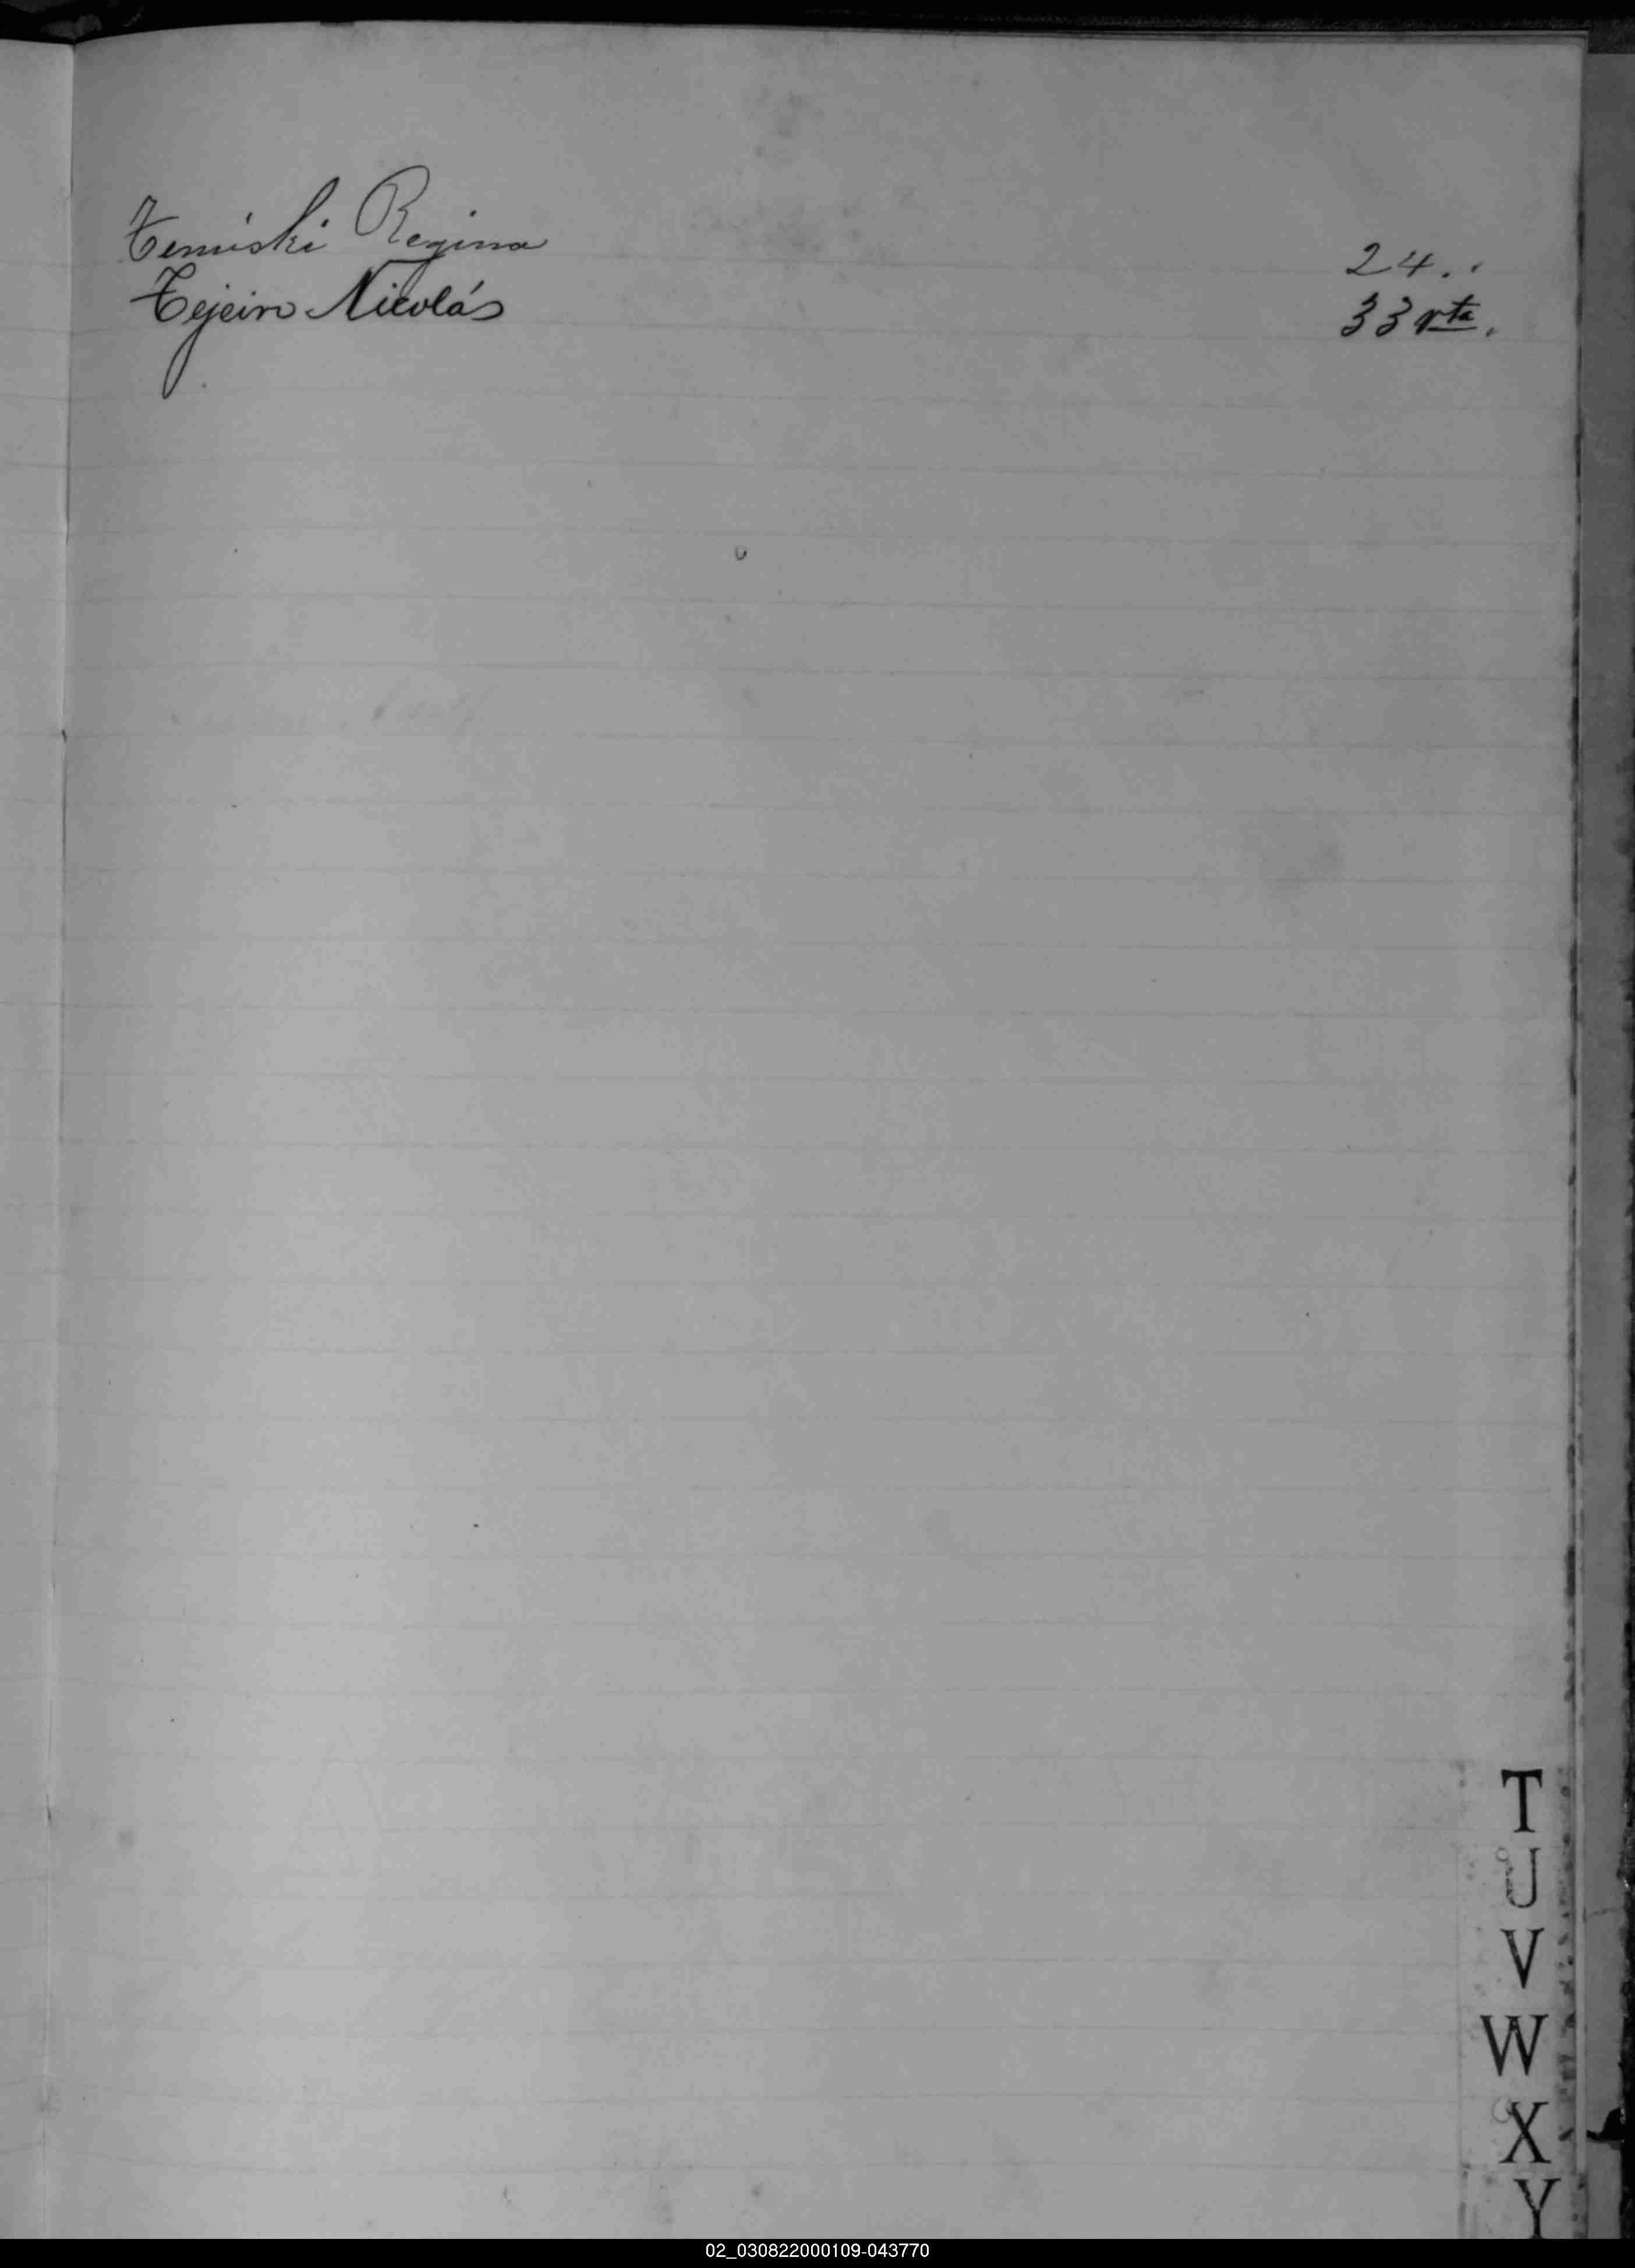 Temiski Regina 24..
Tejeiro Nicolás 33 vta.
T
U
V
W
X
Y
02_030822000109-043770